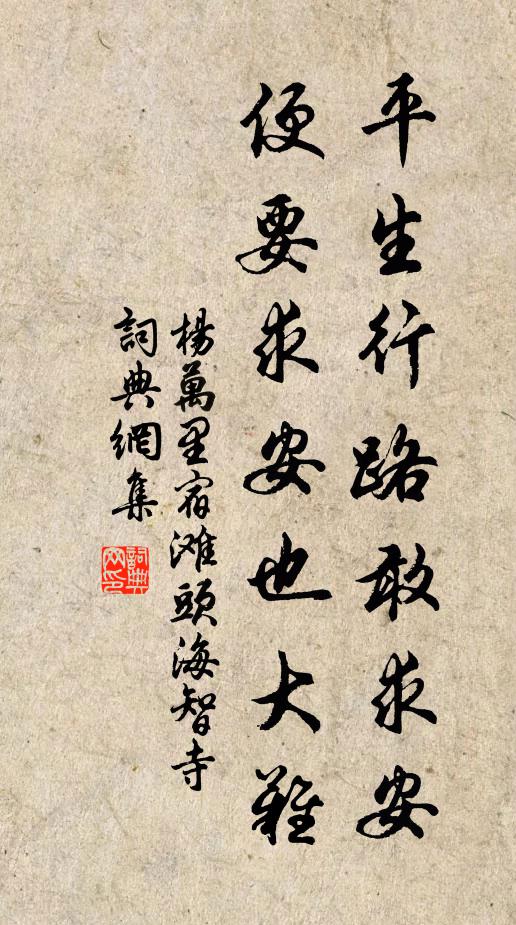 平生行路敢求安
便要求安也大難
楊萬里宿滩頭海智寺
詞典網集
詞典網印